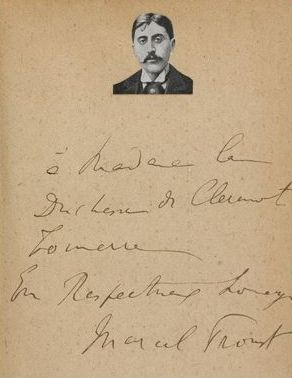 à Madame la
Duchesse de Clermont
Tonnerre
En Respectueux homage
Marcel Proust